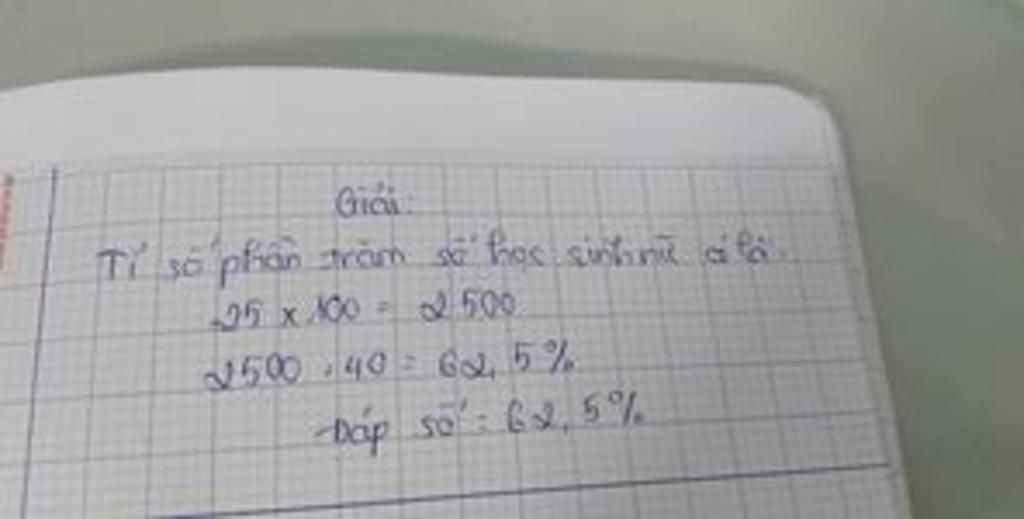 Giải:
Tỉ số phần trăm số học sinh nữ là
25 x 100 = 2500
2500 : 40 = 62,5%
Đáp số: 62,5%